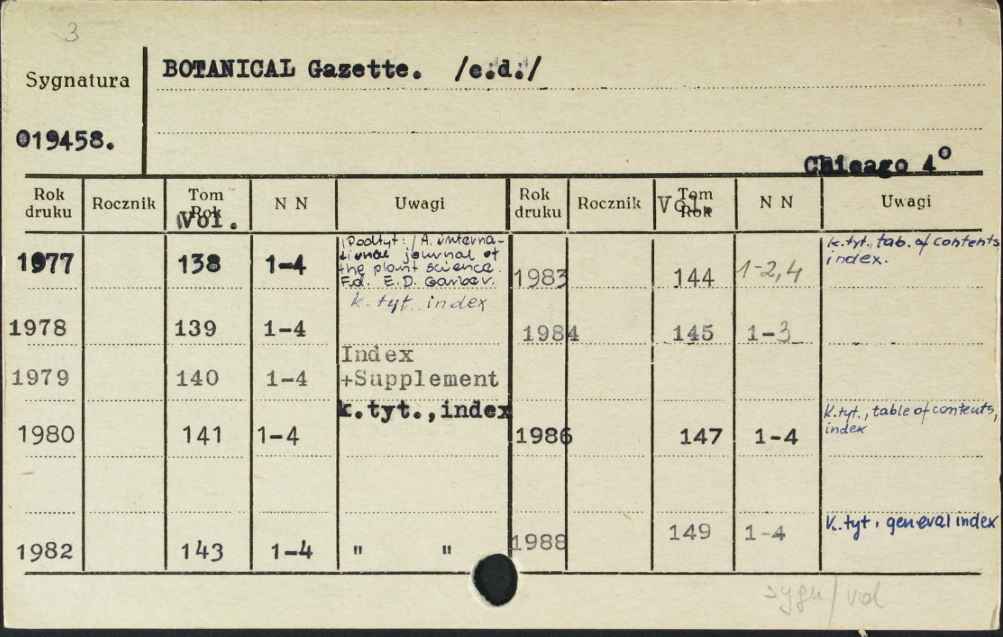 3
Sygnatura
BOTANICAL Gazette. /c.d./
019458.
Chicago 4°
Rok druku Rocznik Tom Rok Vol. N N Uwagi Rok druku Rocznik Tom Rok Vol. N N Uwagi
1977 138 1-4
/Podtyt:/ A interna-
tional journal of
the plant science.
Ed. E.D. Garber.
k. tyt. index
1983 144 1-2,4
k.tyt., tab. of contents
index.
1978 139 1-4
1984 145 1-3
1979 140 1-4 Index
+Supplement
1980 141 1-4 k.tyt.,index
1986 147 1-4
k.tyt., table of contents,
index
1982 143 1-4 " "
1988 149 1-4 k.tyt. general index
sygn/vol